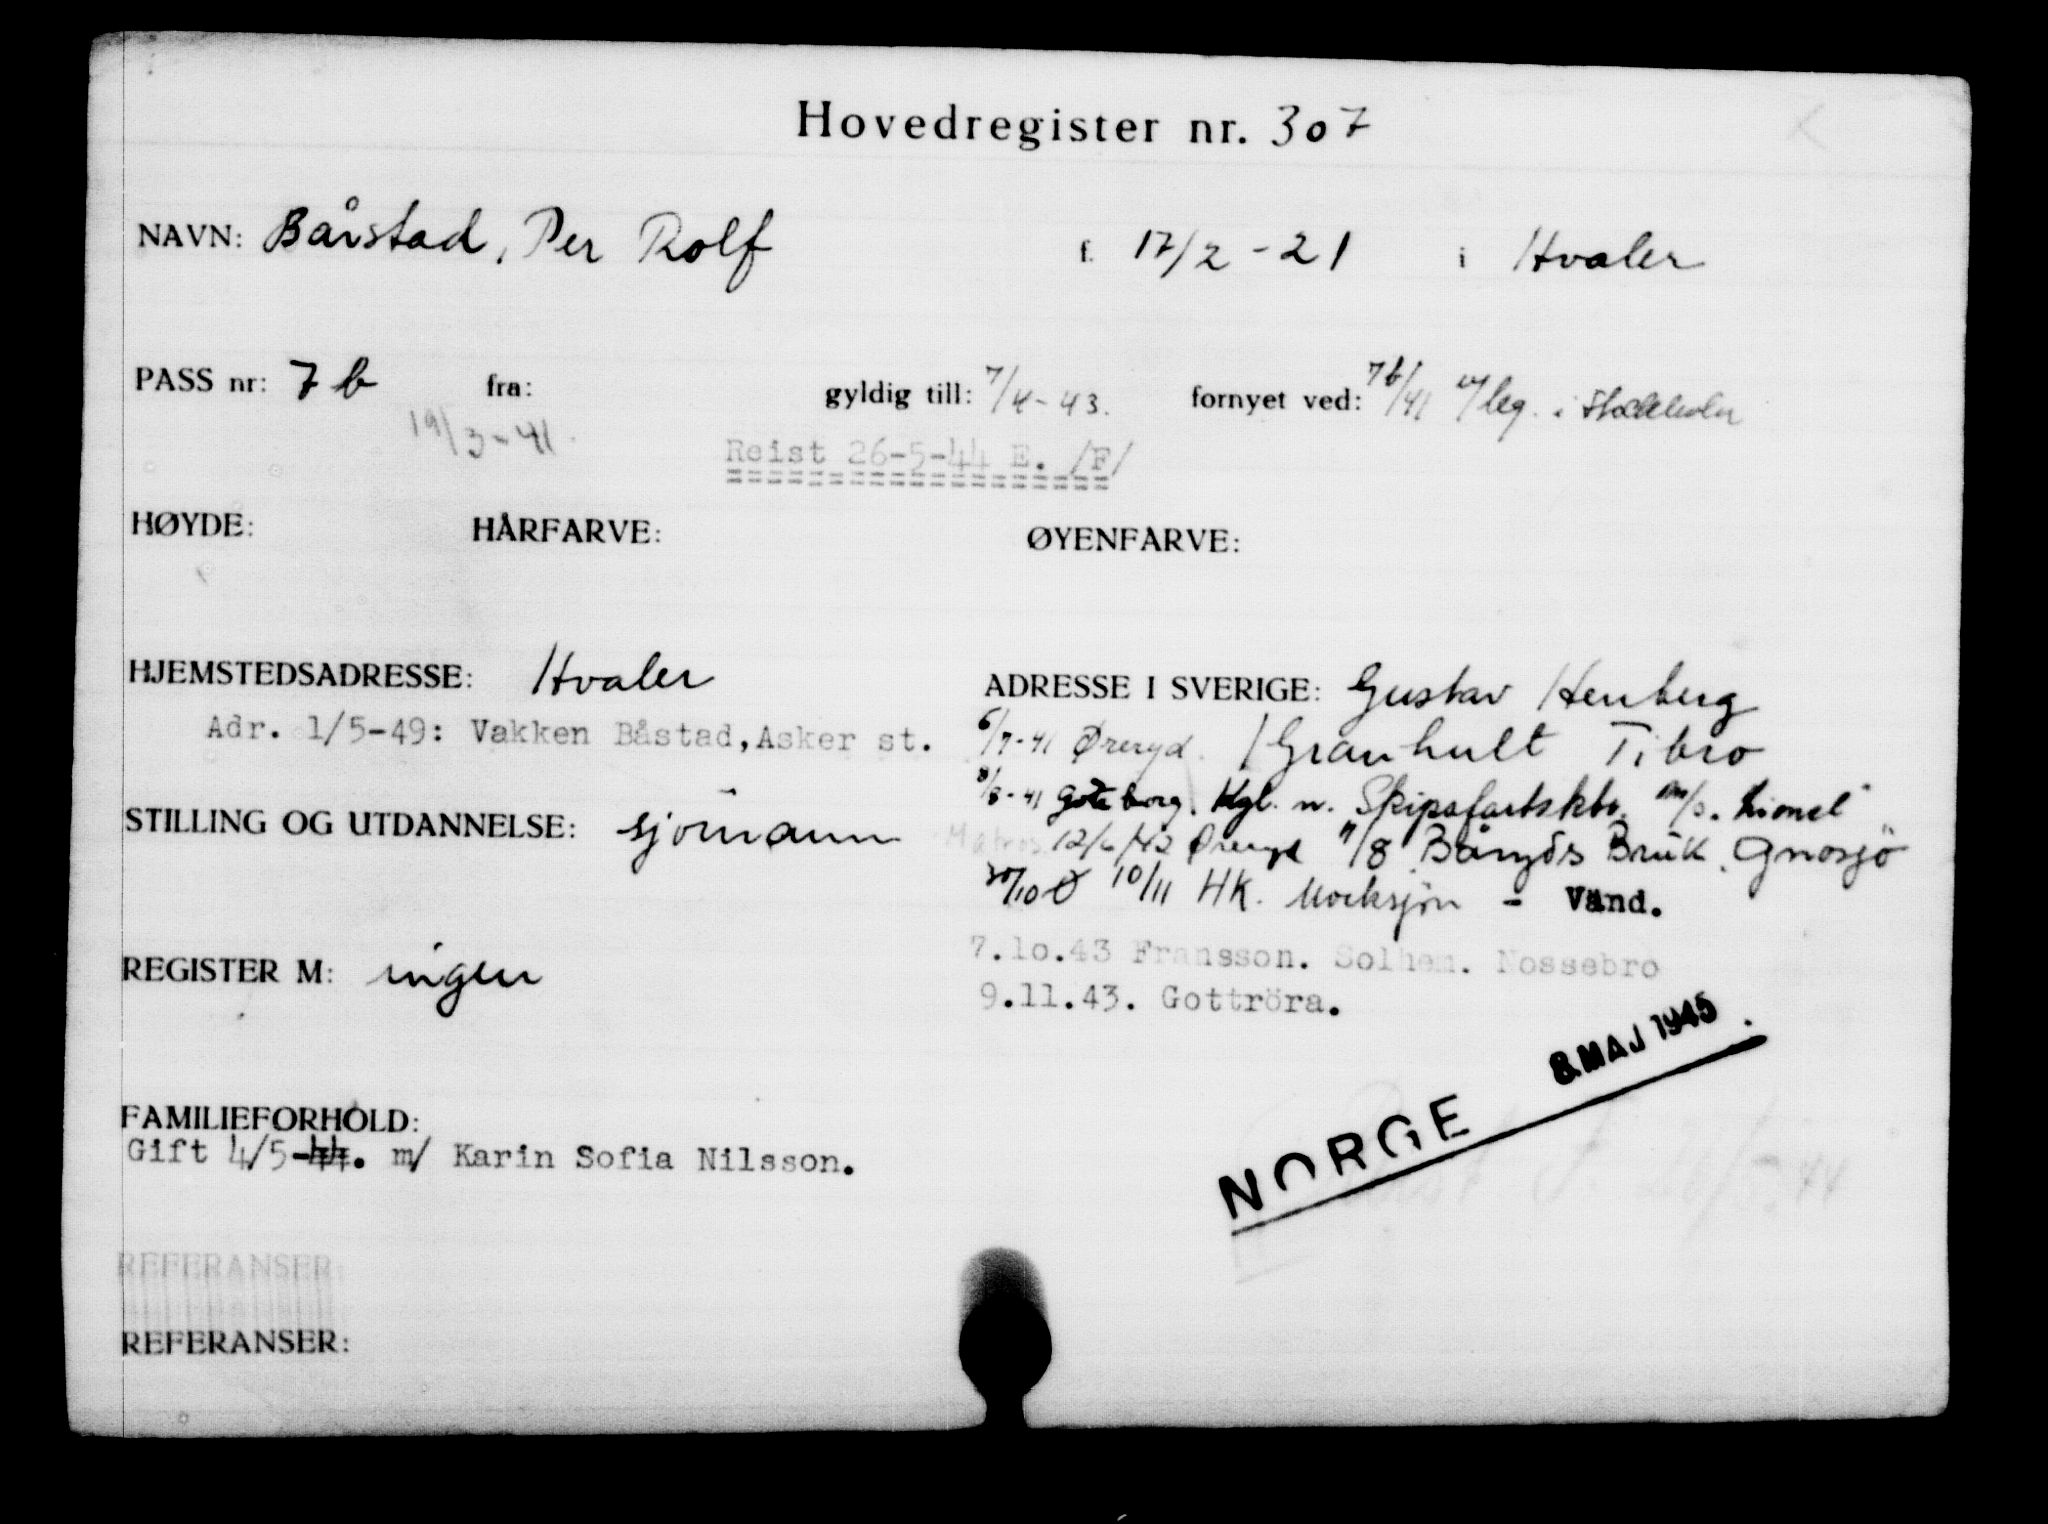 Hovedregister nr. 307
NAVN: Bårstad, Per Rolf f. 17/2 - 21 i Hvaler
PASS nr: 7 b fra: gyldig till: 7/4 - 43. fornyet ved: 7b/41 leg. i Stockholm
19/3 - 41.
Reist 26-5-44 E. /F/
HØYDE: HÅRFARVE: ØYENFARVE:
HJEMSTEDSADRESSE: Hvaler
Adr. 1/5-49: Vakken Båstad, Asker st.
ADRESSE I SVERIGE: Gustav Henberg
6/7-41 Øreryd. / Granhult Tibro
8/8-41 Göteborg. Kgl. n. Skipsfartskto. m/s. Lionel"
STILLING OG UTDANNELSE: sjömann
Matros. 12/6/42 Øreryd 11/8 Båryds Bruk. Gnosjö
30/10 Ø 10/11 HK. Mocksjön - Vänd.
REGISTER M: ingen
7.10.43 Fransson. Solhem. Nossebro
9.11.43. Gottröra.
NORGE 8. MAJ 1945
FAMILIEFORHOLD:
Gift 4/5-44. m/ Karin Sofia Nilsson.
Reist 26/5-44
REFERANSER:
REFERANSER: